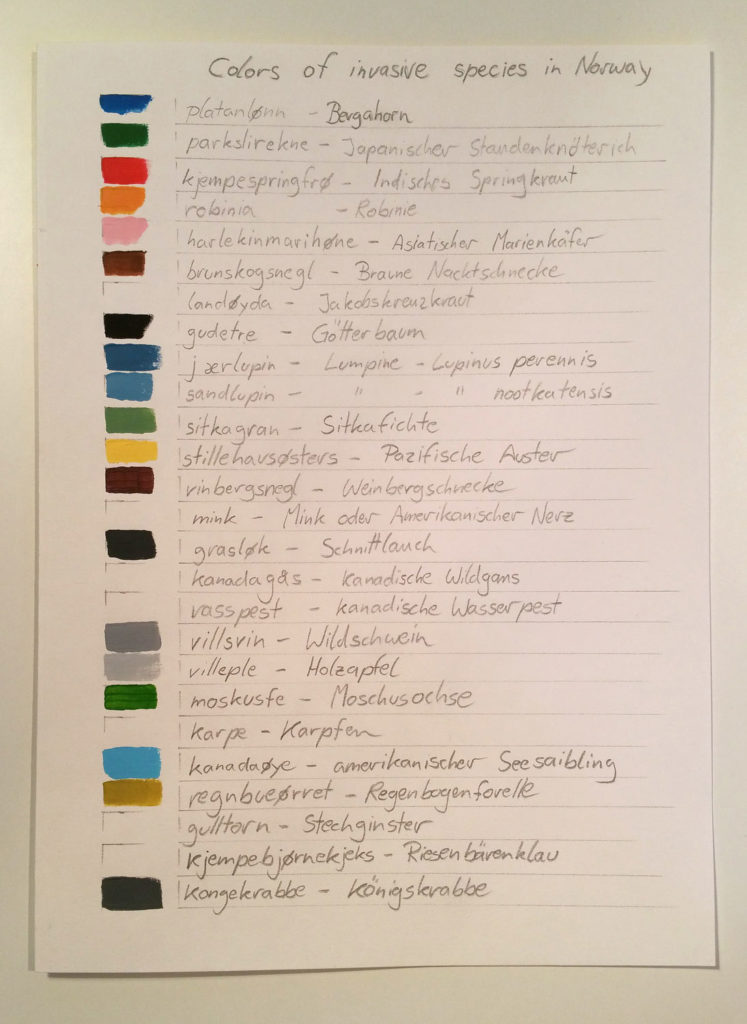 Colors of invasive species in Norway
platanlønn - Bergahorn
parkslirekne - Japanischer Staudenknöterich
kjempespringfrø - Indisches Springkraut
robinia - Robinie
harlekinmarihøne - Asiatischer Marienkäfer
brunskogsnegl - Braune Nacktschnecke
landøyda - Jakobskreuzkraut
gudetre - Götterbaum
jærlupin - Lumpine - Lupinus perennis
sandlupin - " - " nootkatensis
sitkagran - Sitkafichte
stillehavsøsters - Pazifische Auster
vinbergsnegl - Weinbergschnecke
mink - Mink oder Amerikanischer Nerz
grasløk - Schnittlauch
kanadagås - kanadische Wildgans
vasspest - kanadische Wasserpest
villsvin - Wildschwein
villeple - Holzapfel
moskusfe - Moschusochse
karpe - Karpfen
kanadaøye - amerikanischer Seesaibling
regnbueørret - Regenbogenforelle
gulltorn - Stechginster
kjempebjørnekjeks - Riesenbärenklau
kongekrabbe - Königskrabbe